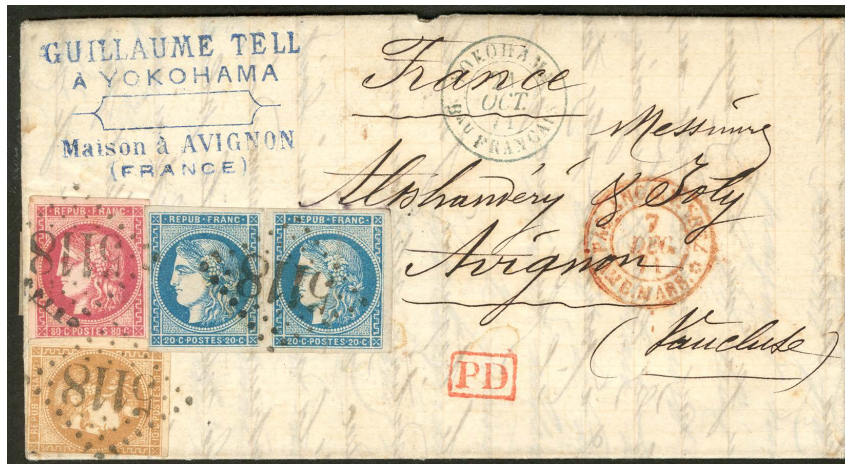 GUILLAUME TELL
À YOKOHAMA
Maison à AVIGNON
(FRANCE)
France
YOKOHAMA
OCT.
71
Bau FRANÇAIS
Messieurs
Alphandéry & Joly
Avignon
(Vaucluse)
7
DÉC.
MARS.
PD
REPUB·FRANC
80·C·POSTES·80·C
5118
REPUB·FRANC
20·C·POSTES·20·C
REPUB·FRANC
20·C·POSTES·20·C
5118
5118